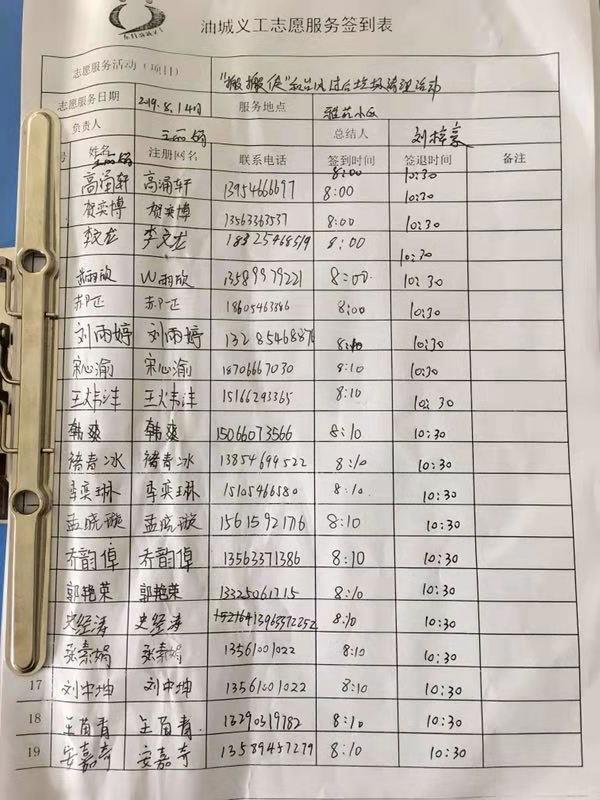 油城义工志愿服务签到表
志愿服务活动（项目） “搬搬侠”和台风过后垃圾清理活动
志愿服务日期 2019.8.14日 服务地点 雅苑小区
负责人 总结人 刘梓豪
号 姓名 注册网名 联系电话 签到时间 签退时间 备注
8:00 10:30
高涌轩 高涌轩 13954666697 8:00 10:30
贺奕博 贺奕博 13563363537 8:00 10:30
李文龙 李文龙 8:00 10:30
雨欣 W雨欣 13589979221 8:00 10:30
18605463386 8:00 10:30
刘雨婷 刘雨婷 10:30
宋心渝 宋心渝 18706667030 8:10 10:30
王炜沣 王炜沣 15166293365 8:10 10:30
韩爽 韩爽 15066073566 8:10 10:30
褚春冰 褚春冰 13854694522 8:10 10:30
李奕琳 李奕琳 15105466580 8:10 10:30
孟晓璇 孟晓璇 15615921716 8:10 10:30
乔韵倬 乔韵倬 13563371386 8:10 10:30
郭艳荣 郭艳荣 13325061715 8:10 10:30
史经涛 史经涛 13963372252 8:10 10:30
张素娟 张素娟 13561001022 8:10 10:30
17 刘中坤 刘中坤 13561001022 8:10 10:30
18 王苗青 王苗青 8:10 10:30
19 安嘉奇 安嘉奇 13589457279 8:10 10:30